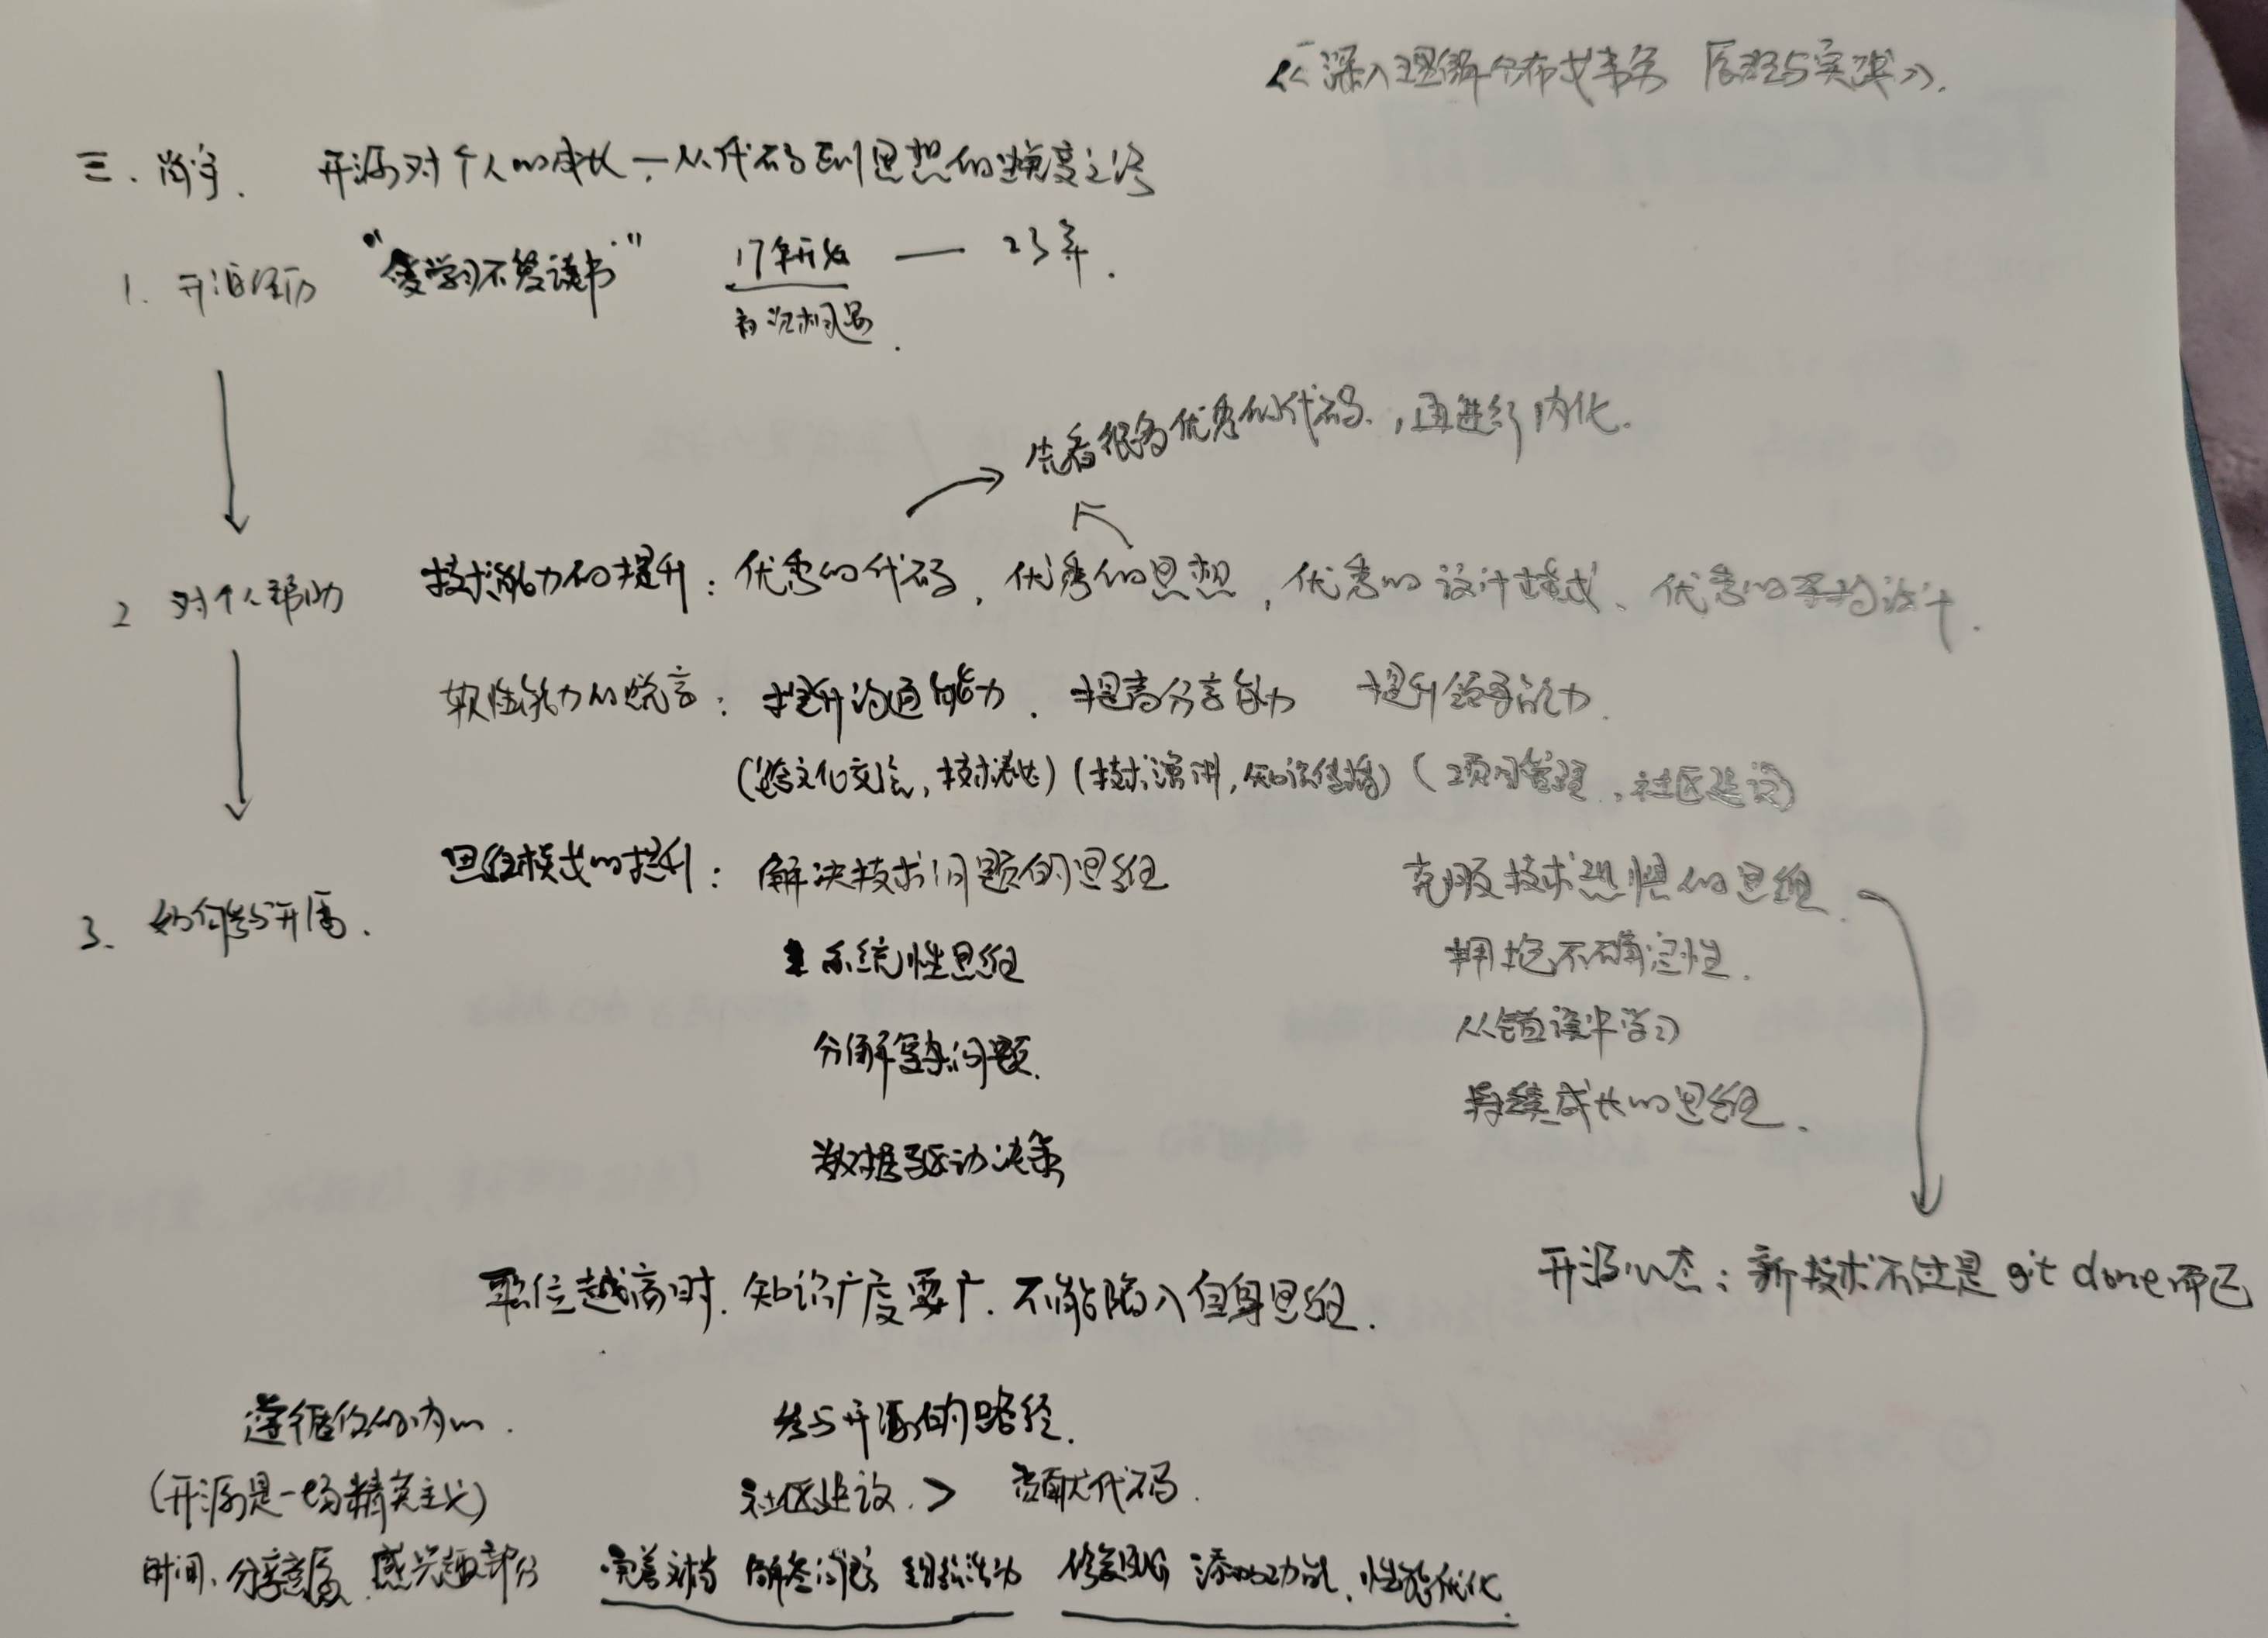 《深入理解分布式事务 原理与实践》.
三. 肖宇. 开源对个人的成长 — 从代码到思想的蜕变之路
1. 开源经历 “爱学习不爱读书” 17年开始 — 23年.
初次相遇.
先看很多优秀的代码, 再进行内化.
2 对个人帮助 技术能力的提升: 优秀的代码, 优秀的思想, 优秀的设计模式、优秀的架构设计.
软性能力的: 提升沟通能力. 提高分享能力 提升领导能力.
(跨文化交流, 技术表达) (技术演讲, 知识传播) (项目管理, 社区建设)
思维模式的提升: 解决技术问题的思维 克服技术恐惧的思维.
3. 如何参与开源.
系统性思维 拥抱不确定性.
分解复杂问题. 从错误中学习
持续成长的思维.
数据驱动决策
职位越高时. 知识广度要广. 不能陷入自身思维.
开源心态: 新技术不过是 git clone 而已
遵循你的内心. 参与开源的路径.
(开源是一场精英主义) 社区建设. > 贡献代码.
时间、分享意愿. 感兴趣部分 完善文档 解答问题 组织活动 修复BUG 添加功能、性能优化.